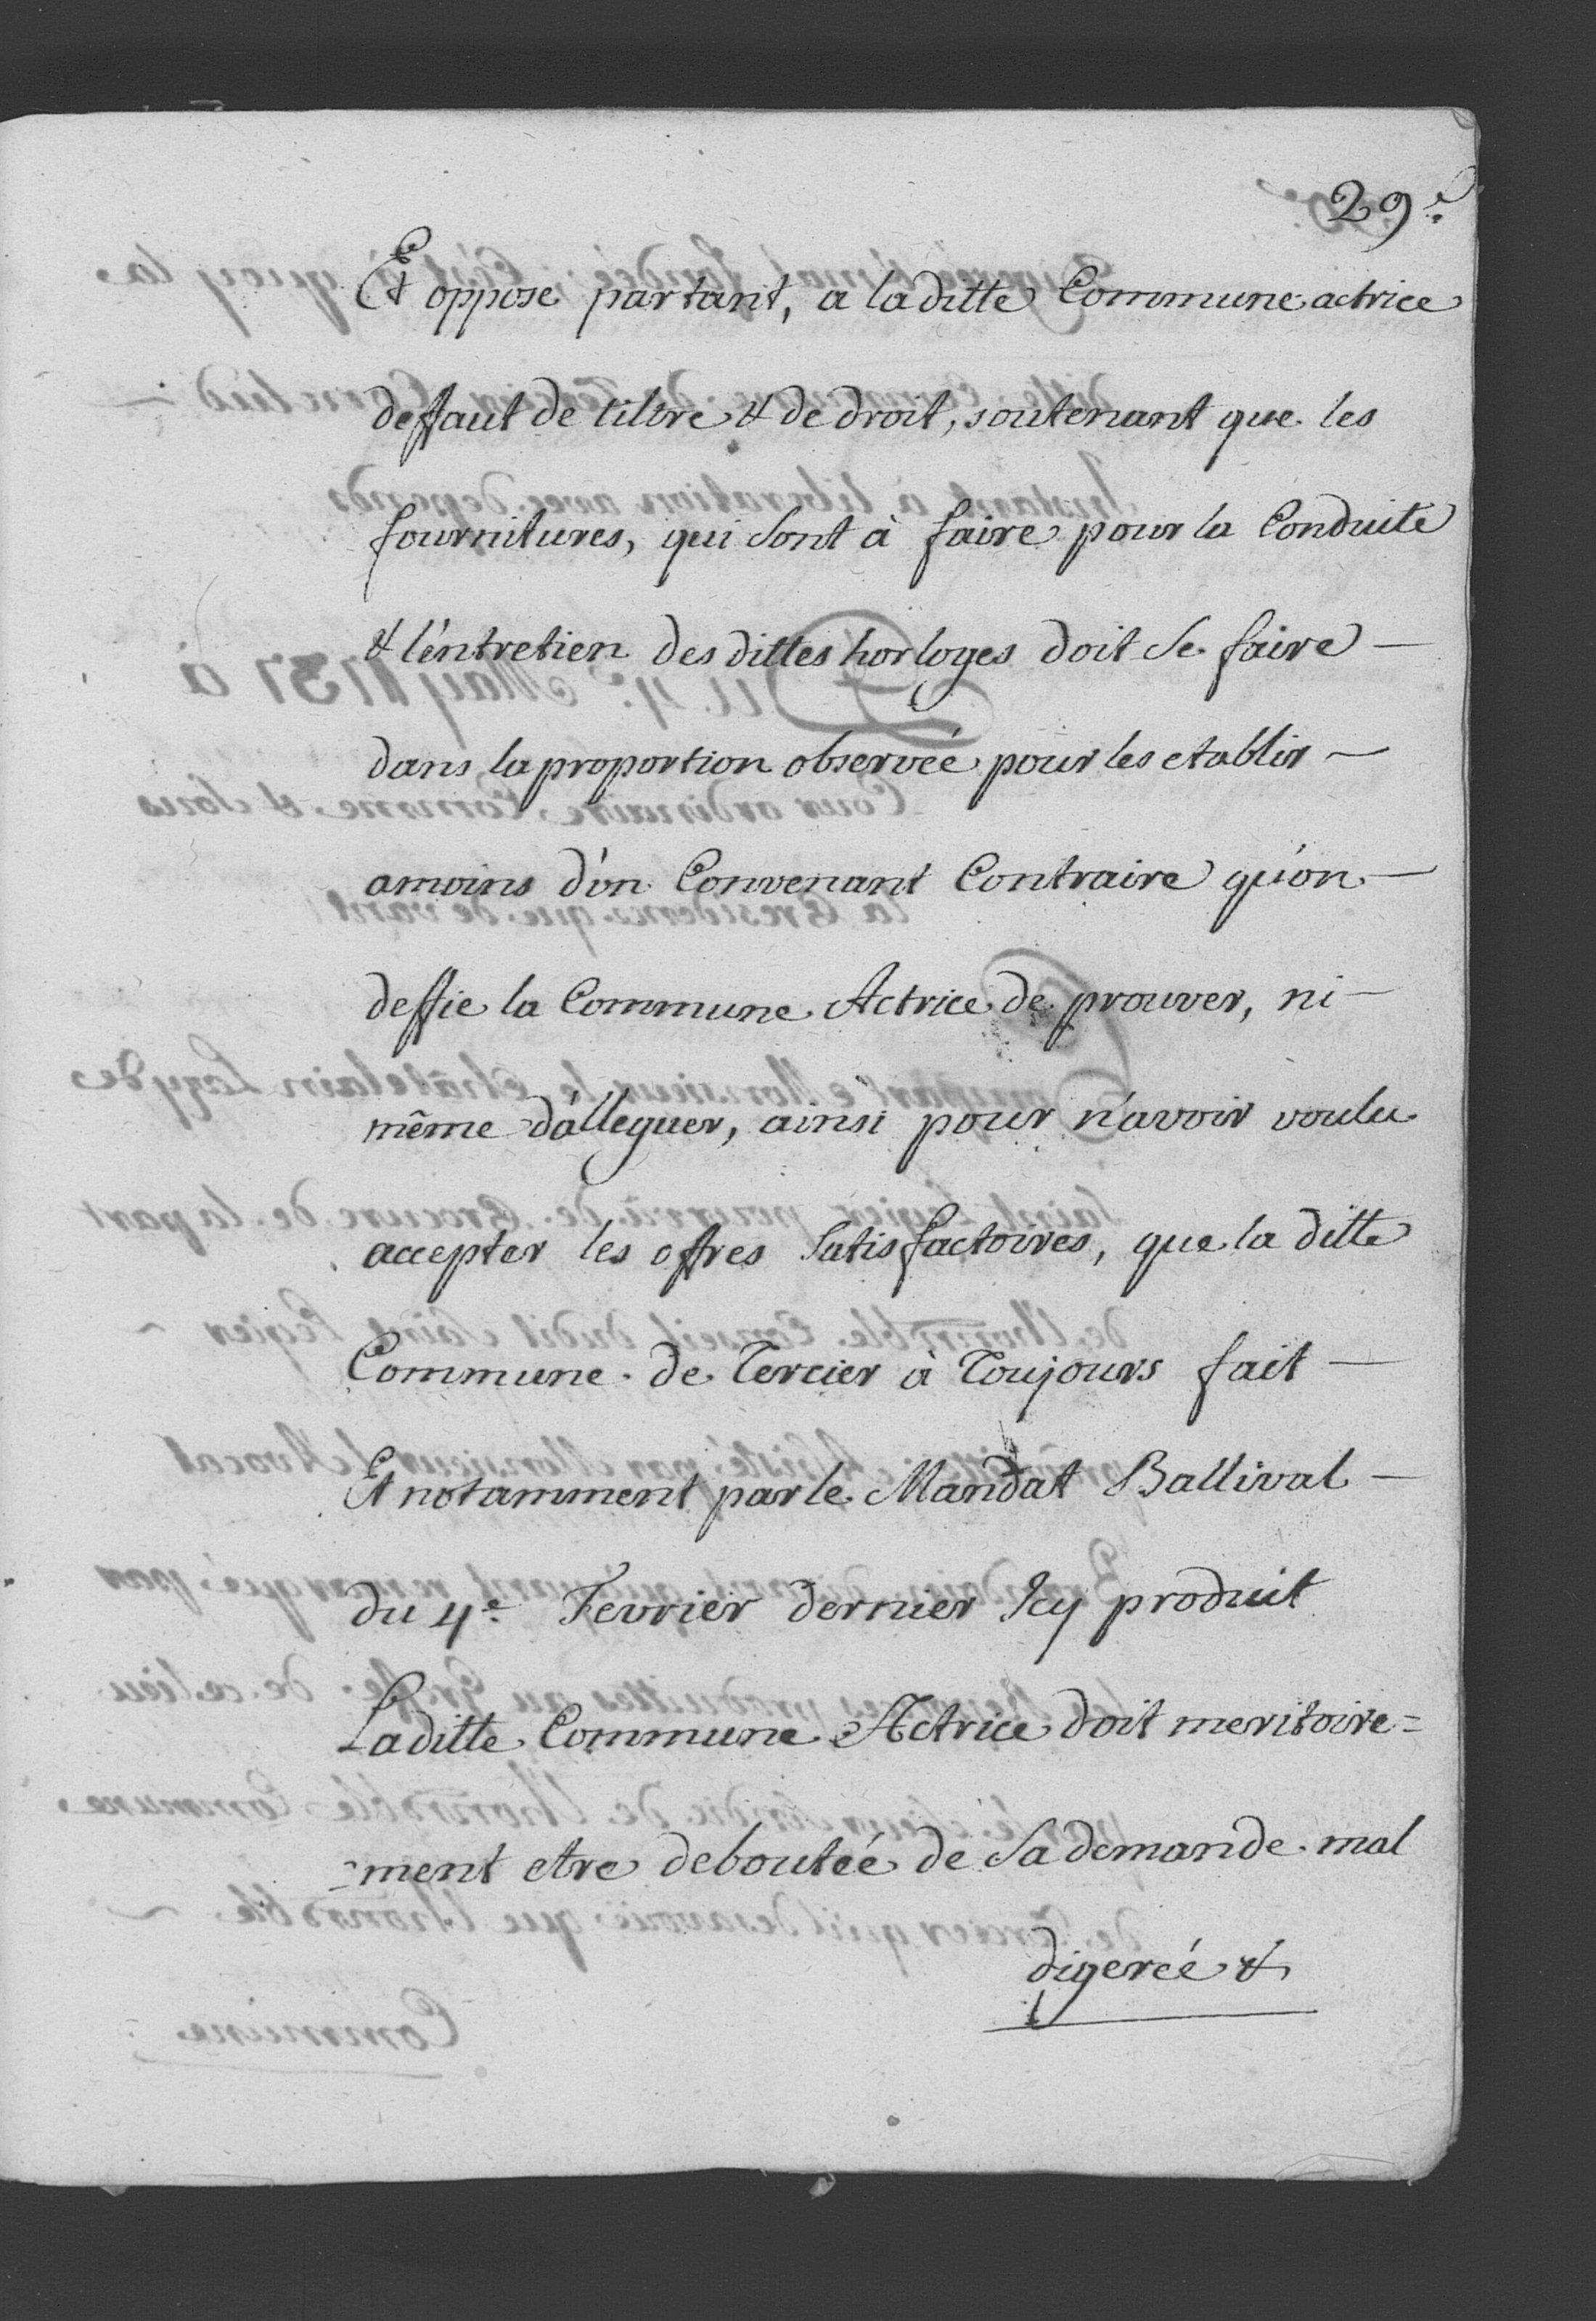 29.e
Et oppose partant, a laditte Commune actrice
deffaut de tiltre & de droit, soutenant que les
fournitures, qui sont à faire pour la Conduite
& l'entretien des dittes horloges doit se faire —
dans la proportion observeé pour les etablir —
amoins d'on Convenant Contraire qu'on —
deffie la Commune Actrice de prouver, ni —
même d'alleguer, ainsi pour n'avoir voulu
accepter les offres satisfactoires, que la ditte
Commune de Tercier à Toujours fait —
Et notamment par le Mandat Ballival —
du 4.e Fevrier dernier Icy produit
Laditte Commune Actrice doit meritoire=
=ment etre debouteé de sa demande mal
digereé &